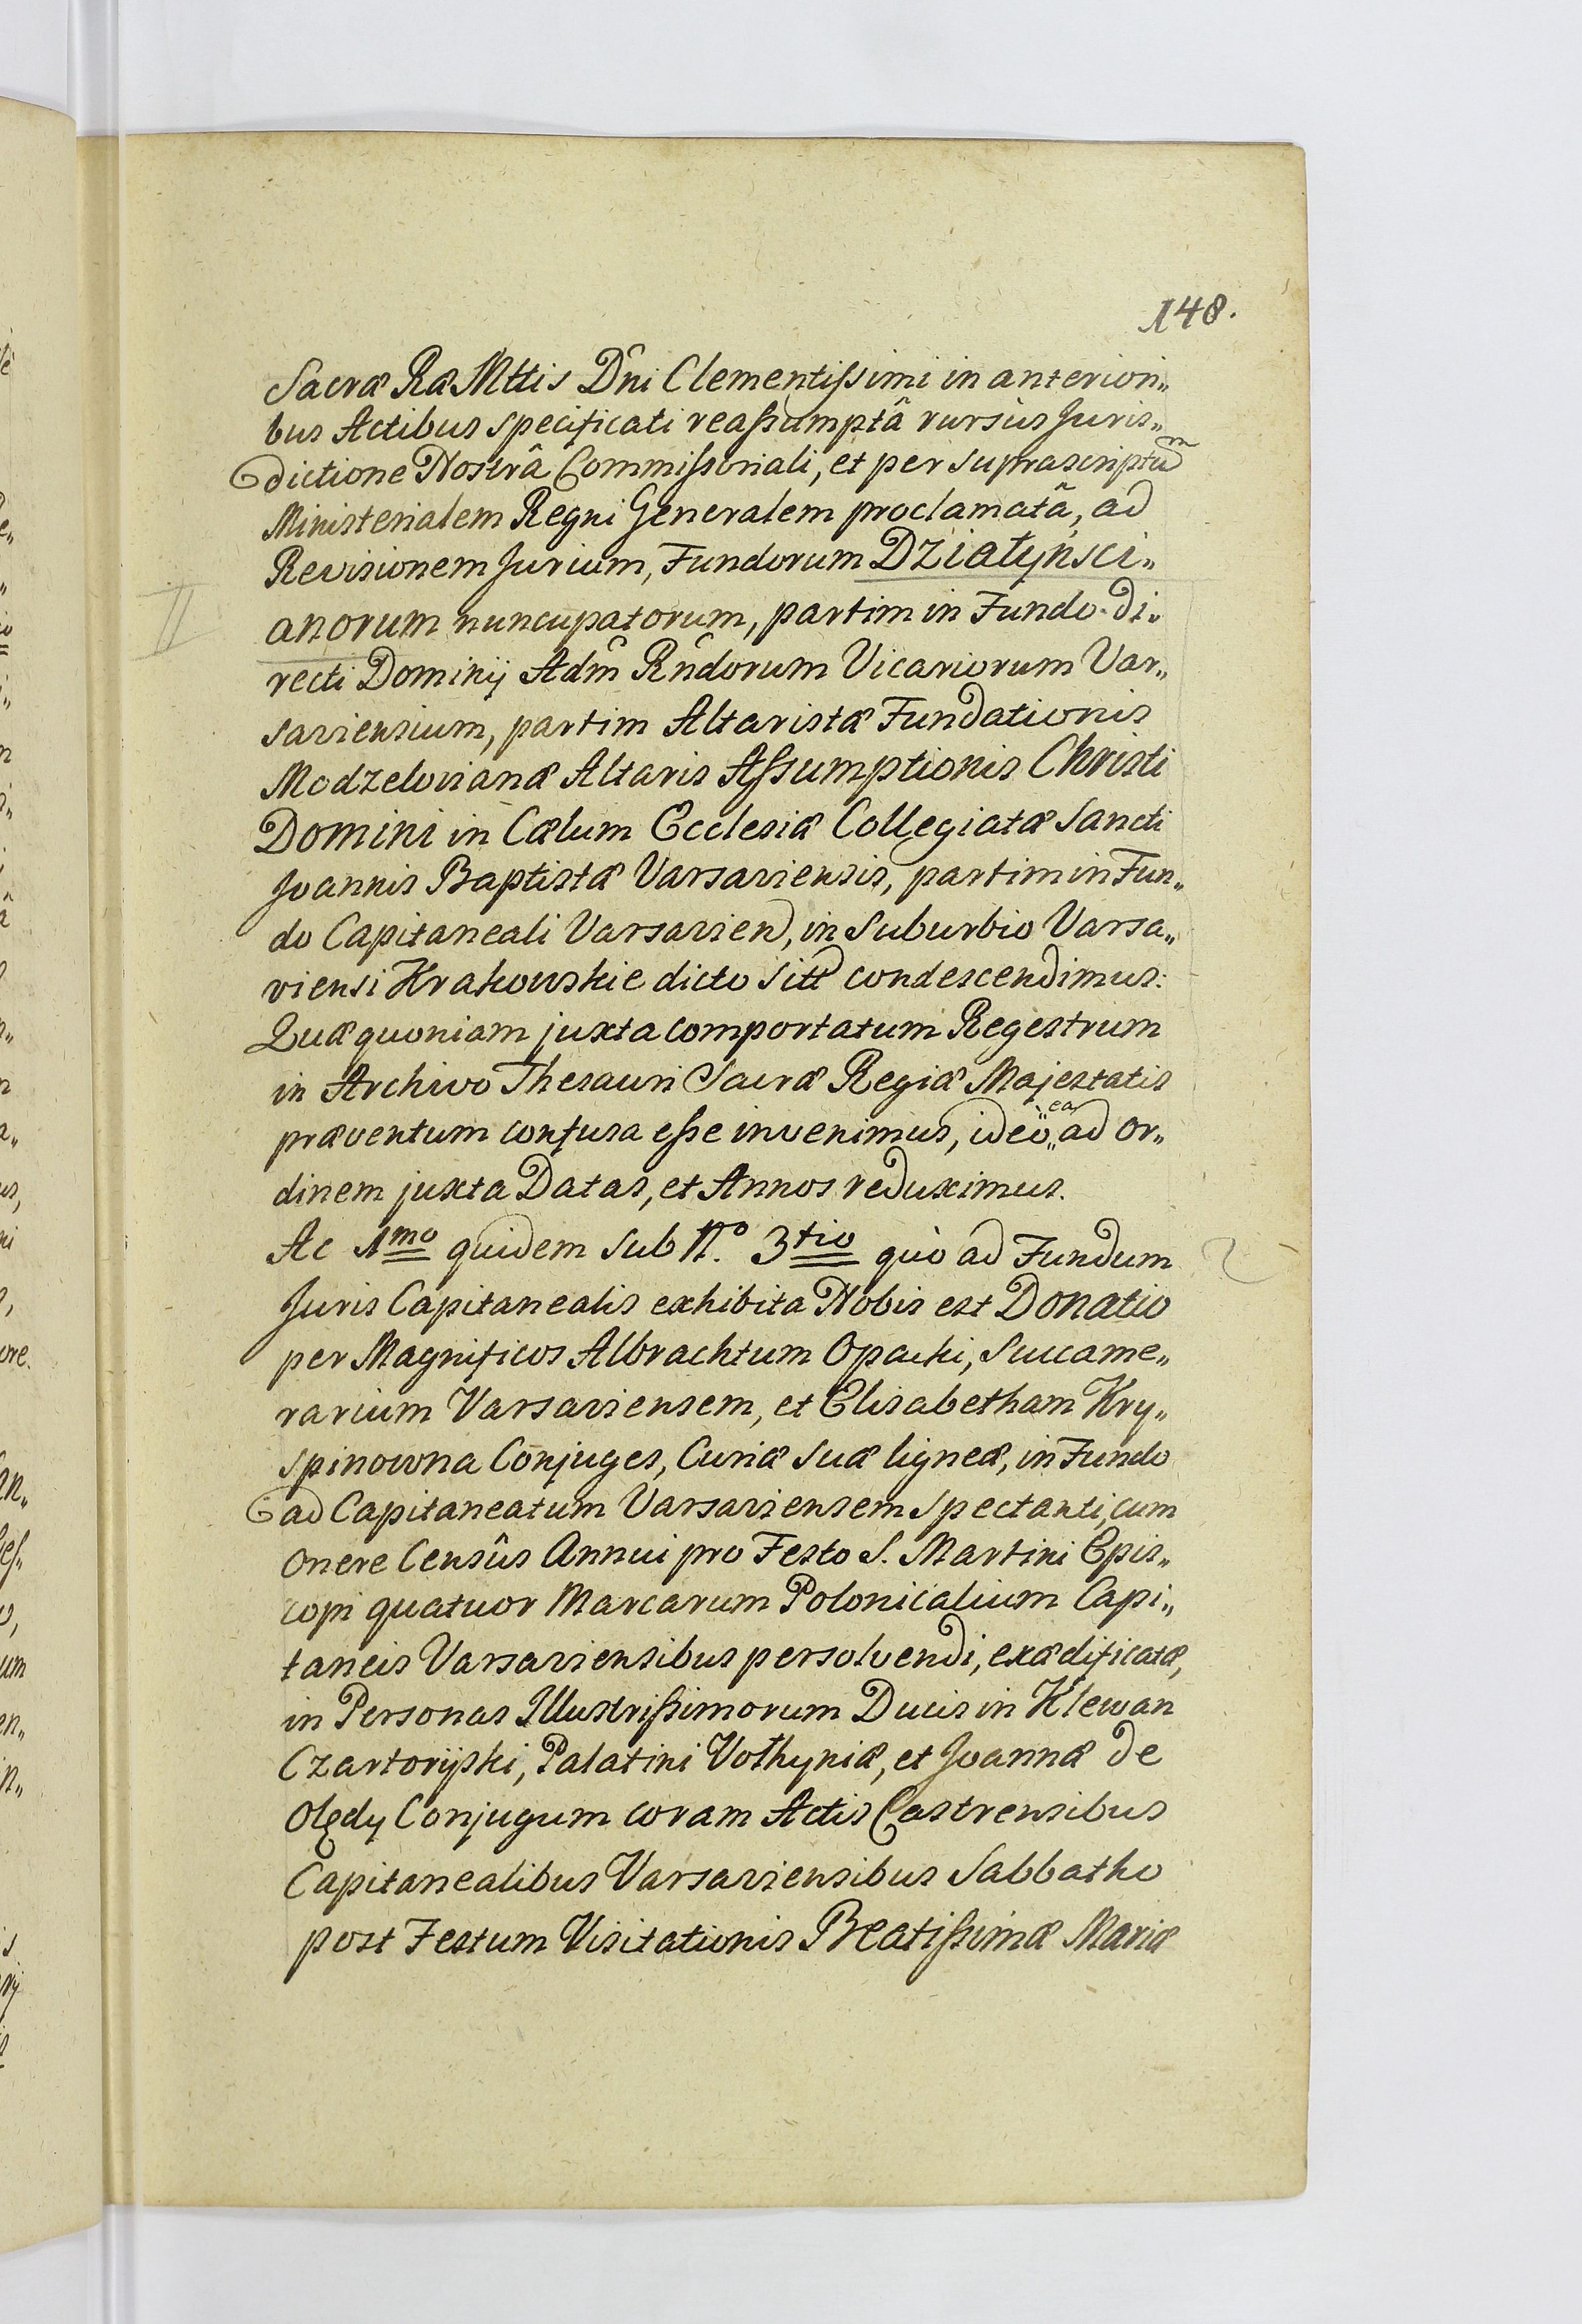 148.
Sacræ Ræ Mttis Dni Clementissimi in anteriori„
bus Actibus specificati reassumptâ rursus Juris„
dictione Nostrâ Commissoriali, et per suprascriptum
Ministerialem Regni Generalem proclamatâ, ad
Revisionem Jurium, Fundorum Działyńsci„
anorum nuncupatorum, partim in Fundo di„
recti Dominij Adm Rndorum Vicariorum Var„
saviensium, partim Altaristæ Fundationis
Modzelovianæ Altaris Assumptionis Christi
Domini in Cælum Ecclesiæ Collegiatæ Sancti
Joannis Baptistæ Varsaviensis, partim in Fun„
do Capitaneali Varsavien, in Suburbio Varsa„
viensi Krakowskie dicto sitt condescendimus:
Quæ quoniam juxta comportatum Regestrum
in Archivo Thesauri Sacræ Regiæ Majestatis
præventum confusa esse invenimus, ideò ea ad or„
dinem juxta Datas, et Annos reduximus.
Ac 1mo quidem sub N.o 3tio quò ad Fundum
Juris Capitanealis exhibita Nobis est Donatio
per Magnificos Albrachtum Opacki, Succame„
rarium Varsaviensem, et Elisabetham Kry„
spinowna Conjuges, Curiæ suæ ligneæ, in Fundo
ad Capitaneatum Varsaviensem spectanti, cum
onere Censûs Annui pro Festo S. Martini Epis„
copi quatuor Marcarum Polonicalium Capi„
taneis Varsaviensibus persolvendi, exædificatæ,
in Personas Illustrissimorum Ducis in Klewan
Czartoryski, Palatini Vołhyniæ, et Joannæ de
Olędy Conjugum coram Actis Castrensibus
Capitanealibus Varsaviensibus Sabbatho
post Festum Visitationis Beatissimæ Mariæ